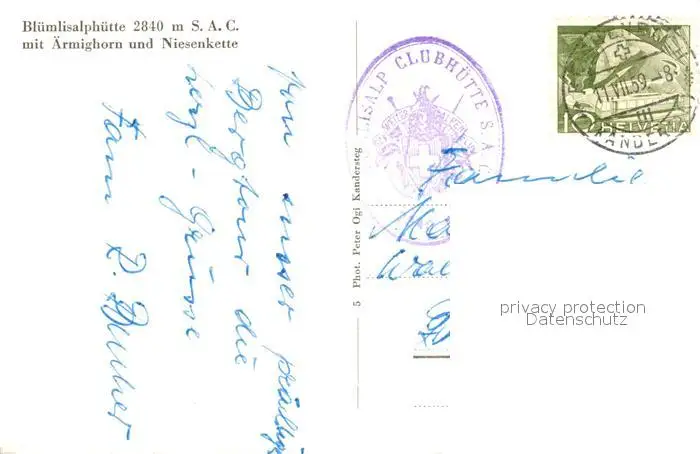 Blümlisalphütte 2840 m S. A. C.
mit Ärmighorn und Niesenkette
von unser prächtig
Bergtour die
herzl - Grüsse
Fam
5 Phot. Peter Ogi Kandersteg
LISALP CLUBHÜTTE S. A. C
11.VII.59.-8
III
10 HELVETIA
KANDER
Familie
Ma
Wal
privacy protection
Datenschutz